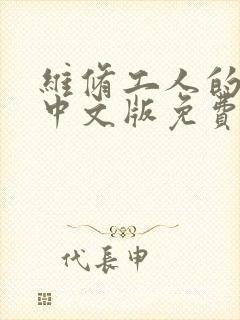 維修工人的
中文版免費
代長申